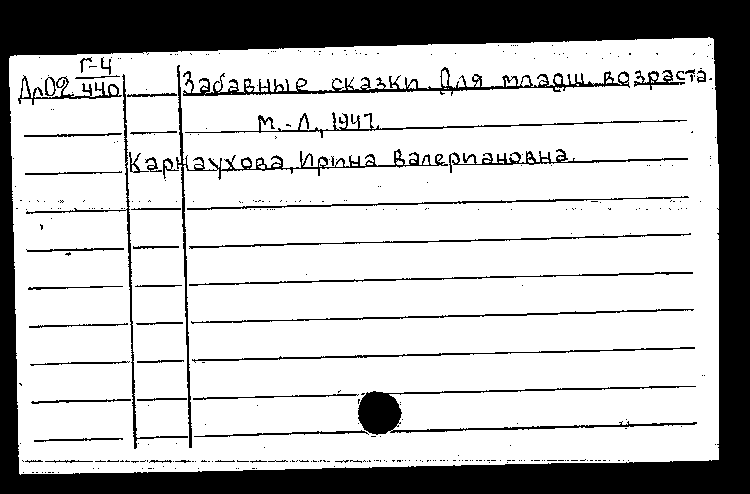 Г-4
Дл02 440 Забавные сказки. Для младш. возраста.
М.-Л., 1947.
Карнаухова, Ирина Валериановна.